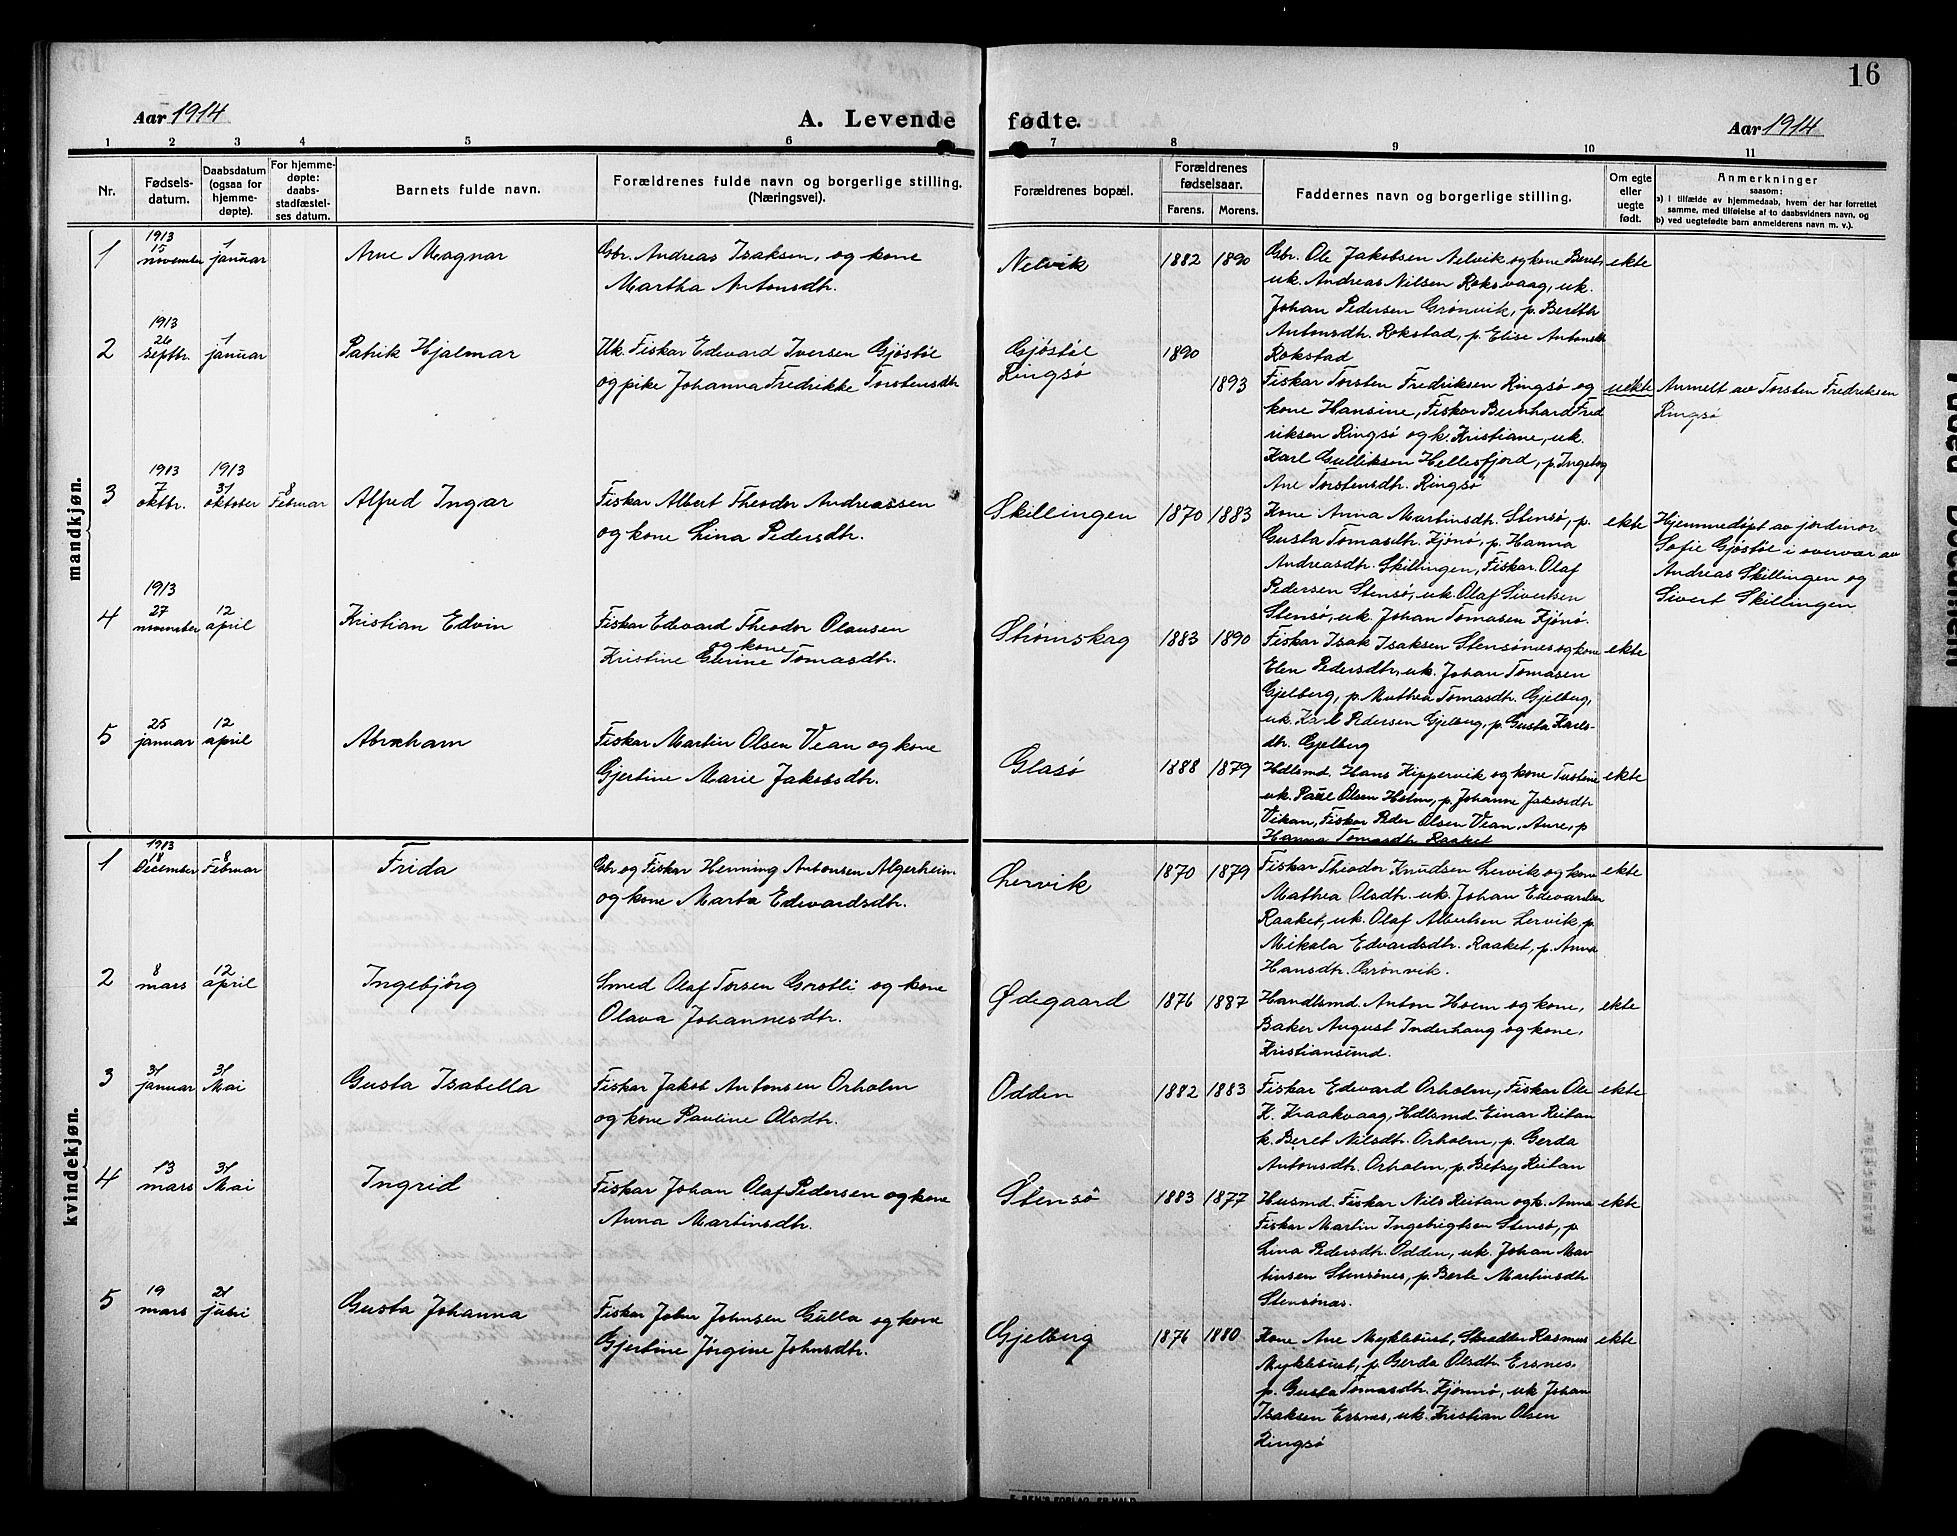 16
Aar 1914
A. Levende fødte.
Aar 1914
1 2 3 4 5 6 7 8 9 10 11
Nr.
Fødsels-
datum.
Daabsdatum
(ogsaa for
hjemme-
døpte).
For hjemme-
døpte:
daabs-
stadfæstel-
ses datum.
Barnets fulde navn.
Forældrenes fulde navn og borgerlige stilling.
(Næringsvei).
Forældrenes bopæl.
Forældrenes
fødselsaar.
Farens. Morens.
Faddernes navn og borgerlige stilling.
Om egte
eller
uegte
født.
Anmerkninger
saasom:
a) i tilfælde av hjemmedaab, hvem der har forrettet
samme, med tilføielse af to daabsvidners navn, og
b) ved uegtefødte barn anmelderens navn m. v.).
mandkjøn.
1
1913
15
november
1
januar
Arne Magnar
Gbr. Andreas Isaksen, og kone
Martha Antonsdtr.
Nelvik
1882 1890
Gbr. Ole Jakobsen Nelvik og kone Beret,
uk. Andreas Nilsen Roksvaag, uk.
Johan Pedersen Grønvik, p. Bereth
Antonsdtr. Rokstad, p. Elise Antonsdtr
Rokstad
ekte
2
1913
26
septbr.
1
januar
Patrik Hjalmar
Uk. Fiskar Edevard Iversen Gjøstøl
og pike Johanna Fredrikke Torstensdtr
Gjøstøl
Ringsø
1890
1893
Fiskar Torsten Fredriksen Ringsø og
kone Hansine, Fiskar Bernhard Fred
riksen Ringsø og k. Kristiane, uk.
Karl Gulliksen Hellesfjord, p. Ingeborg
Ane Torstensdtr. Ringsø
uekte
Anmelt av Torsten Fredriksen
Ringsø
3
1913
7
oktbr.
1913
31
oktober
8
Februar
Alfred Ingar
Fiskar Albert Theodor Andreassen
og kone Lina Pedersdtr.
Skillingen
1870 1883
Kone Anna Martinsdtr. Stensø, p.
Gusta Tomasdtr. Kjønø, p. Hanna
Andreasdtr. Skillingen, Fiskar. Olaf
Pedersen Stensø, uk. Olaf Sivertsen
Stensø, uk. Johan Tomasen Kjønø.
ekte
Hjemmedøpt av jordmor
Sofie Gjøstøl i overvær av
Andreas Skillingen og
Sivert Skillingen
4
1913
27
november
12
april
Kristian Edvin
Fiskar Edevard Theodor Olausen
og kone
Kristine Gurine Tomasdtr.
Strømskag
1883 1890
Fiskar Isak Isaksen Stensønes og kone
Elen Pedersdtr, uk. Johan Tomasen
Gjelberg, p. Mathea Tomasdtr. Gjelberg,
uk. Karl Pedersen Gjelberg, p. Gusta Karls-
dtr. Gjelberg
ekte
5
25
januar
12
april
Abraham
Fiskar Martin Olsen Vean og kone
Gjertine Marie Jakobsdtr.
Glasø
1888 1879
Hdlsmd. Hans Kippervik og kone Torstine
uk. Paul Olsen Holm, p. Johanne Jakobsdtr
Vikan, Fiskar Peder Olsen Vean, Aure, p
Hanna Tomasdtr. Raaket
ekte
kvindekjøn.
1
1913
18
December
8
Februar
Frida
Gbr og Fiskar Henning Antonsen Algerheim
og kone Marta Edevardsdtr.
Lervik
1870 1879
Fiskar Theodor Knudsen Lervik og kone
Mathea Olsdtr. uk. Johan Edevardsen
Raaket, uk. Olaf Albertsen Lervik, p.
Mikala Edvardsdtr. Raaket, p. Anna
Hansdtr. Grønvik.
ekte
2
8
mars
12
april
Ingebjörg
Smed Olaf Torsen Grotli og kone
Olava Johannesdtr.
Ødegaard
1876 1887
Handlsmd. Anton Hoem og kone,
Baker August Inderhaug og kone,
Kristiansund.
ekte
3
31
januar
31
Mai
Gusta Isabella
Fiskar Jakob Antonsen Orholm
og kone Pauline Olsdtr.
Odden
1882 1883
Fiskar Edevard Orholm, Fiskar Ole
K. Kraakvaag, Hdlsmd. Einar Reitan
k. Beret Nilsdtr. Orholm, p. Gerda
Antonsdtr. Orholm, p. Betsy Reitan
ekte
4
13
mars
31
Mai
Ingrid
Fiskar Johan Olaf Pedersen og kone
Anna Martinsdtr.
Stensø
1883 1877
Husmd. Fiskar Nils Reitan og k. Anna
Fiskar Martin Ingebrigtsen Stensø, p
Lina Pedersdtr. Odden, uk. Johan Mar
tinsen Stensønes, p. Berte Martinsdtr
Stensønæs.
ekte
5
19
mars
21
juni
Gusta Johanna
Fiskar John Johnsen Gulla og kone
Gjertine Jørgine Johnsdtr.
Gjelberg
1876 1880
Kone Ane Myklebust, Skrædder Rasmus
Myklebust, p. Gerda Olsdtr. Ersnes,
p. Gusta Tomasdtr. Kjønnø, uk Johan
Isaksen Ersnes, uk. Kristian Olsen
Ringsø
ekte